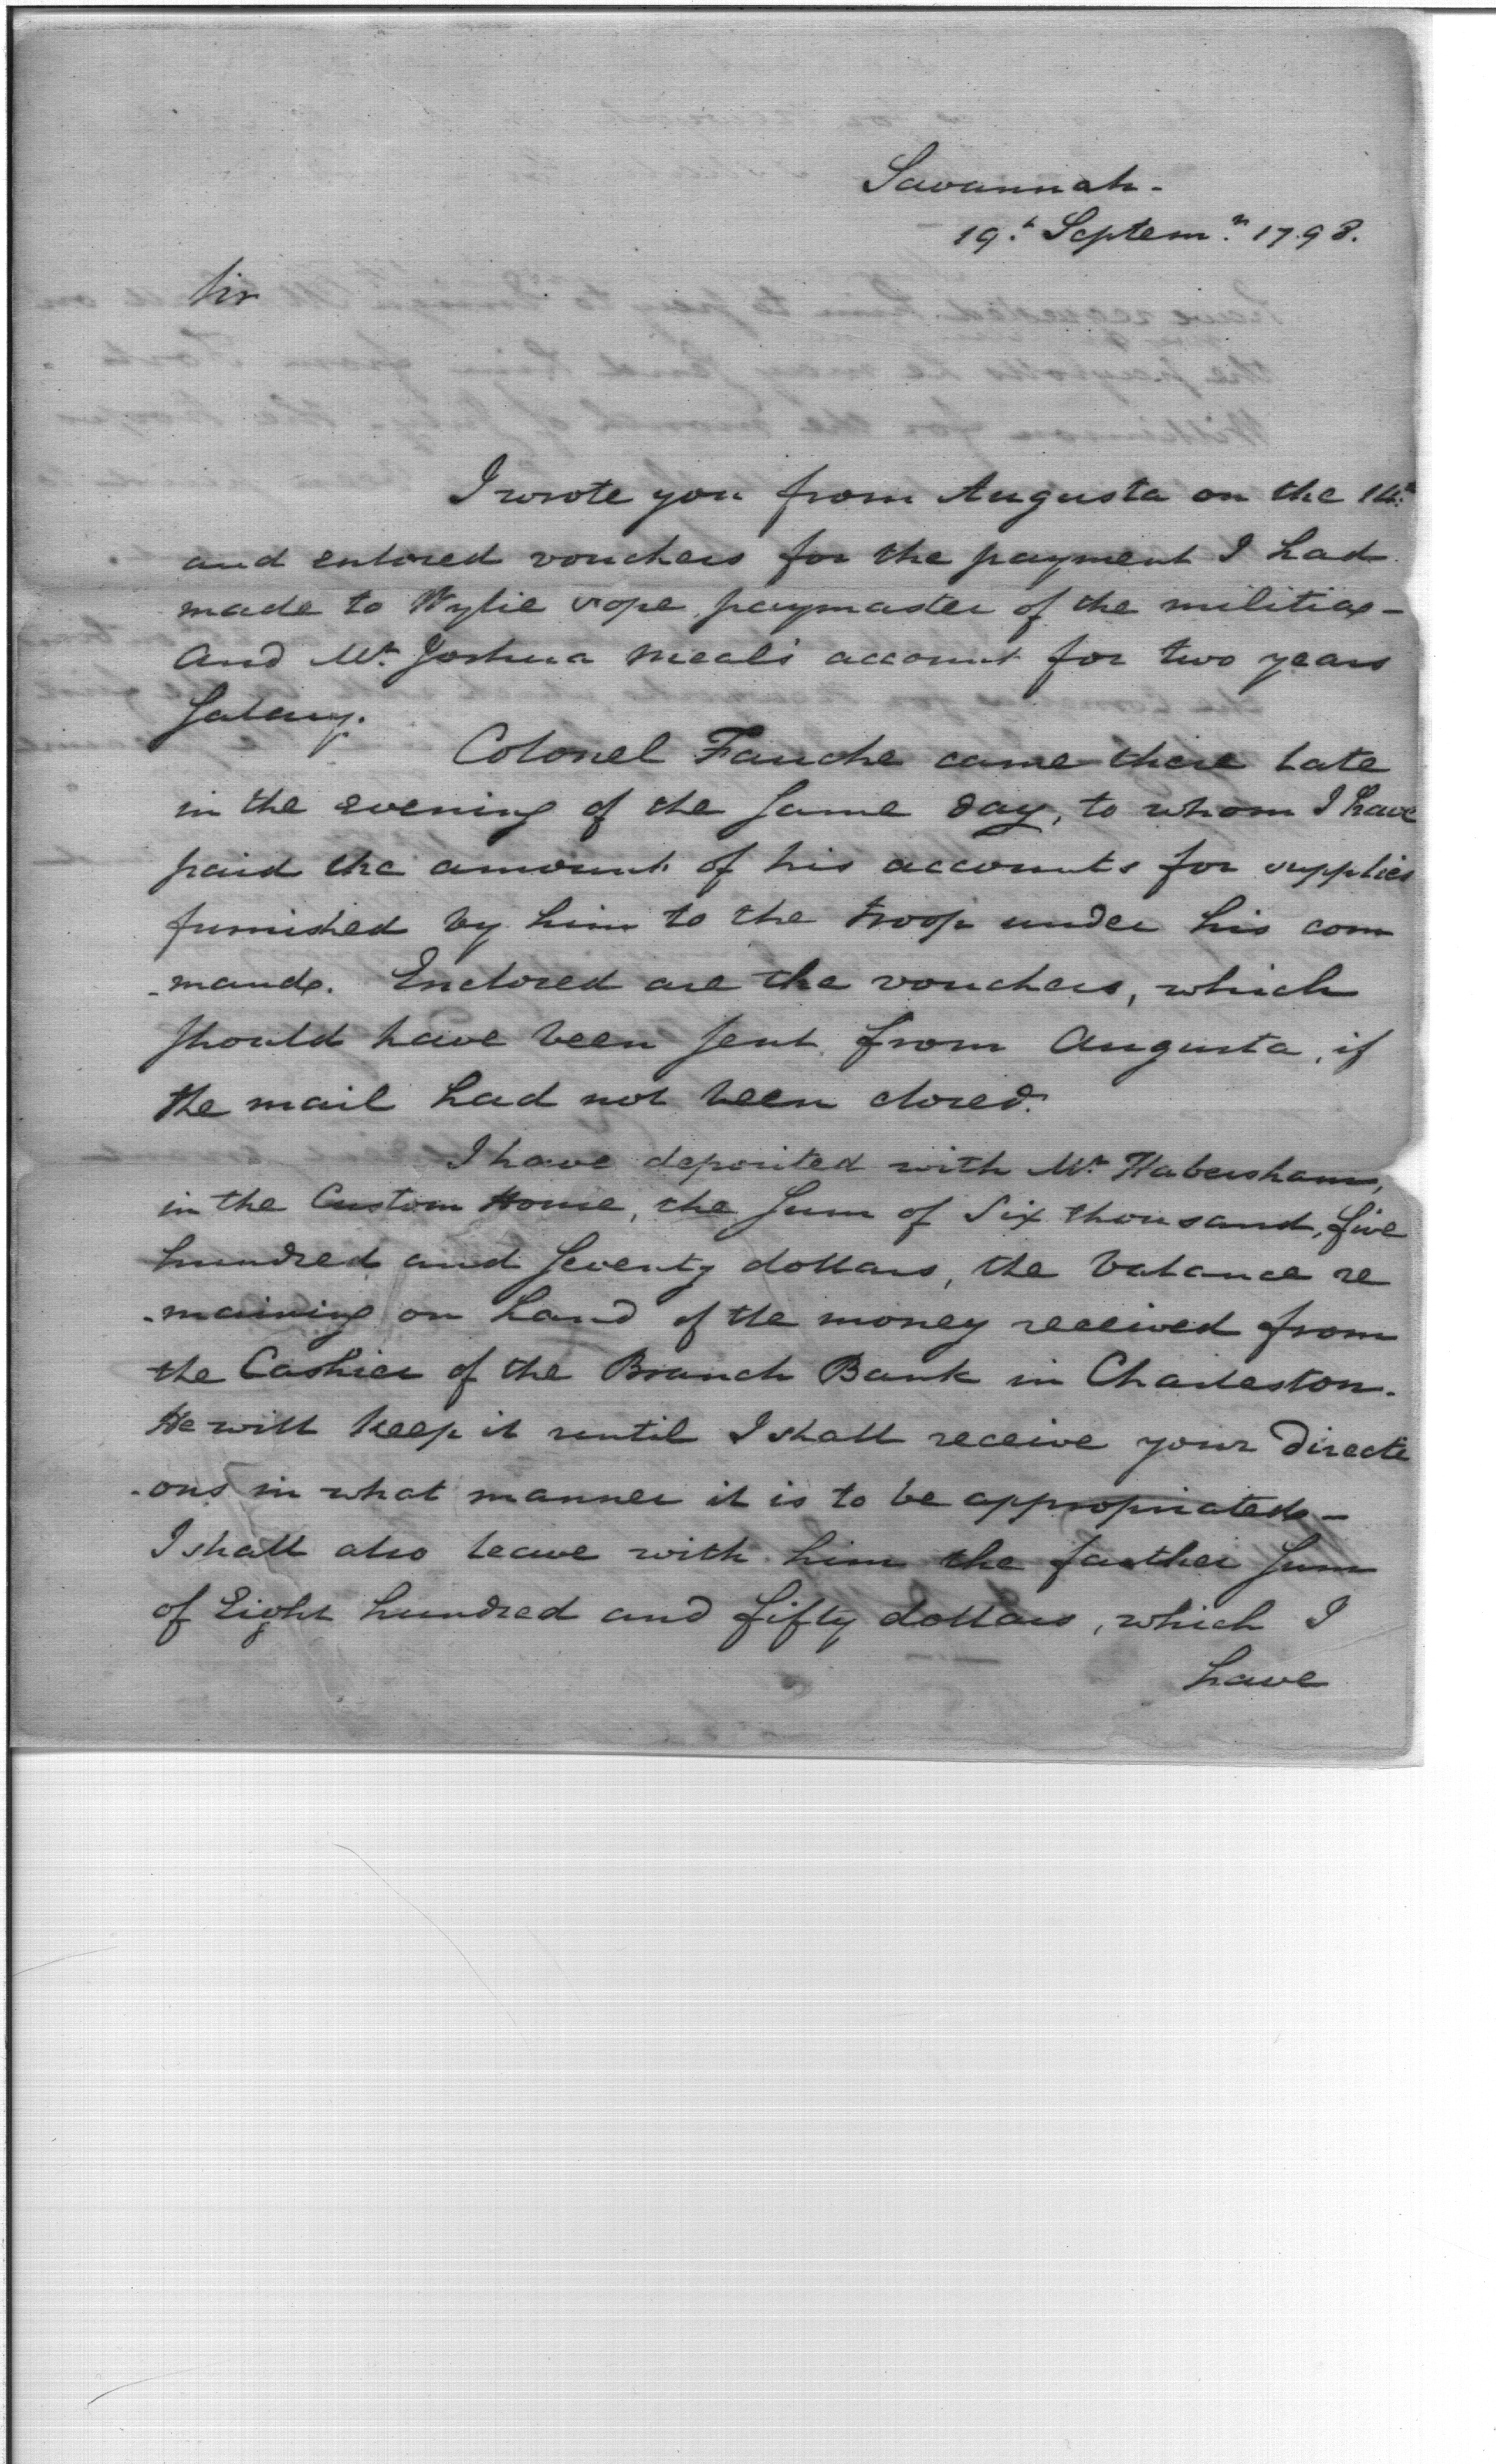 Savannah -
19th Septemr 1798.
Sir
I wrote you from Augusta on the 14th
and enclosed vouchers for the payment I had
made to Wylie Pope, paymaster of the militia -
And Mr Joshua Meals's account for two years
Salary.
Colonel Fauche came there late
in the evening of the same day, to whom I have
paid the amount of his accounts for supplies
furnished by him to the troop under his com
-mand. Enclosed are the vouchers, which
should have been sent from Augusta, if
the mail had not been closed.
I have deposited with Mr Habersham,
in the Custom House, the sum of Six thousand, five
hundred and seventy dollars, the balance re
-maining on hand of the money received from
the Cashier of the Branch Bank in Charleston.
He will keep it until I shall receive your directi
-ons in what manner it is to be appropriated -
I shall also leave with him the farther sum
of Eight hundred and fifty dollars, which I
have